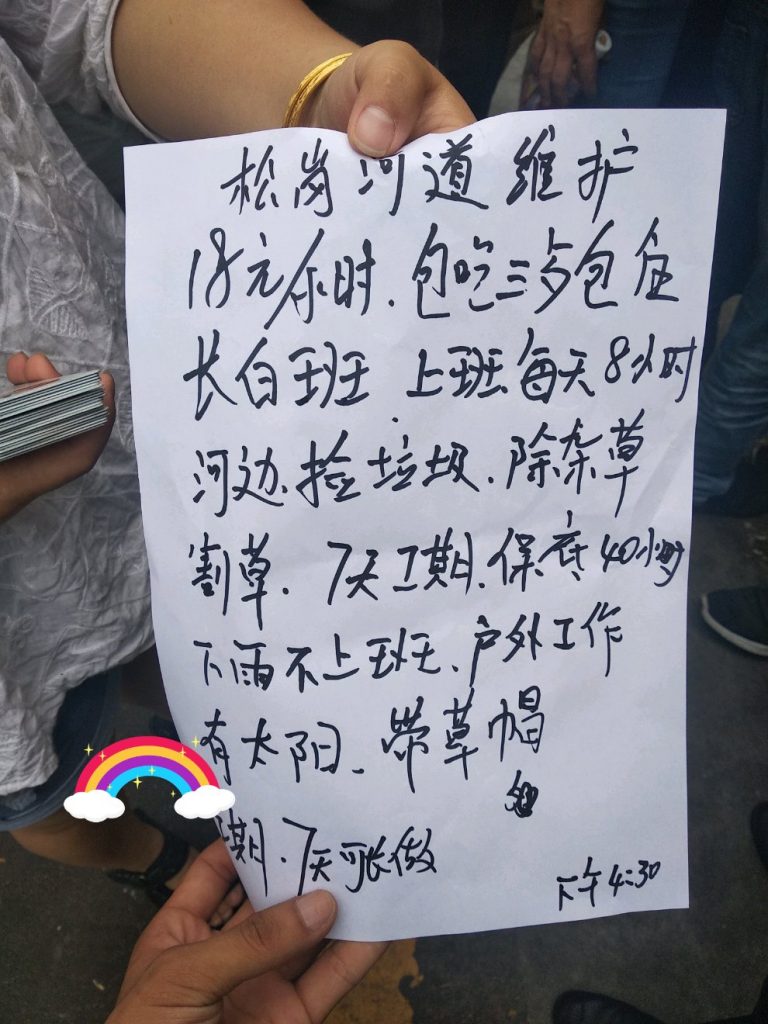 松岗河道维护
18元小时、包吃三歺包住
长白班 上班每天8小时
河边、捡垃圾、除杂草
割草、7天工期、保底40小时
下雨不上班、户外工作
有太阳、带草帽
期、7天可长做
下午4:30